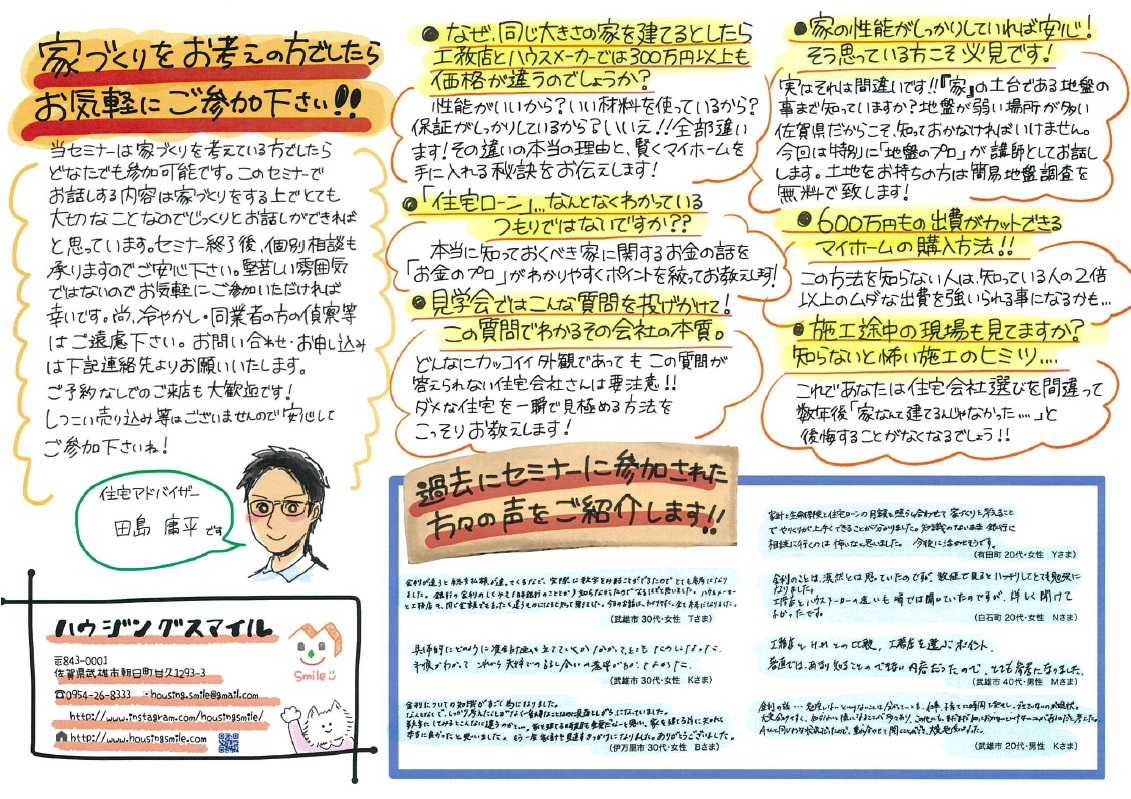 家づくりをお考えの方でしたら
お気軽にご参加下さい!!
当セミナーは家づくりを考えている方でしたら
どなたでも参加可能です。このセミナーで
お話しする内容は家づくりをする上でとても
大切なことなのでじっくりとお話しができれば
と思っています。セミナー終了後、個別相談も
承りますのでご安心下さい。堅苦しい雰囲気
ではないのでお気軽にご参加いただければ
幸いです。尚、冷やかし・同業者の方の偵察等
はご遠慮下さい。お問い合わせ・お申し込み
は下記連絡先よりお願いいたします。
ご予約なしでのご来店も大歓迎です!
しつこい売り込み等はございませんので安心して
ご参加下さいね!
住宅アドバイザー
田島 庸平です
ハウジングスマイル
〒843-0001
佐賀県武雄市朝日町甘久1293-3
☎0954-26-8333 ・housing.smile@gmail.com
http://www.instagram.com/housingsmile/
http://www.housingsmile.com
Smile
●なぜ、同じ大きさの家を建てるとしたら
工務店とハウスメーカーでは300万円以上も
価格が違うのでしょうか?
性能がいいから?いい材料を使っているから?
保証がしっかりしているから?いいえ!!全部違い
ます!その違いの本当の理由と、賢くマイホームを
手に入れる秘訣をお伝えします!
●「住宅ローン」…なんとなくわかっている
つもりではないですか??
本当に知っておくべき家に関するお金の話を
「お金のプロ」がわかりやすくポイントを絞ってお教えします!
●見学会ではこんな質問を投げかけて!
この質問でわかるその会社の本質。
どんなにカッコイイ外観であってもこの質問が
答えられない住宅会社さんは要注意!!
ダメな住宅を一瞬で見極める方法を
こっそりお教えします!
●家の性能がしっかりしていれば安心!
そう思っている方こそ必見です!
実はそれは間違いです!!『家』の土台である地盤の
事まで知っていますか?地盤が弱い場所が多い
佐賀県だからこそ、知っておかなければいけません。
今回は特別に「地盤のプロ」が講師としてお話し
します。土地をお持ちの方は簡易地盤調査を
無料で致します!
●600万円もの出費がカットできる
マイホームの購入方法!!
この方法を知らない人は、知っている人の2倍
以上のムダな出費を強いられる事になるかも…
●施工途中の現場も見てますか?
知らないと怖い施工のヒミツ…
これであなたは住宅会社選びを間違って
数年後「家なんて建てるんじゃなかった…」と
後悔することがなくなるでしょう!!
過去にセミナーに参加された
方々の声をご紹介します!!
(武雄市 30代・女性 Tさま)
(武雄市 30代・女性 Kさま)
(伊万里市 30代・女性 Bさま)
家計と生命保険と住宅ローンの月額を照らし合わせて家づくりを考えること
でやりくりが上手くできることが分かりました。知識のないまま銀行に
相談に行くのは怖いなと思いました。今後に活かせそうです。
(有田町 20代・女性 Yさま)
金利のことは、漠然とは思っていたのですが、数値で見るとハッキリしてとても勉強に
なりました。
工務店とハウスメーカーの違いも噂では聞いていたのですが、詳しく聞けて
よかったです。
(白石町 20代・女性 Nさま)
工務店とH.Mとの比較、工務店を選ぶポイント、
普通では、あまり知ることのできない内容だったので、とても参考になりました。
(武雄市 40代・男性 Mさま)
(武雄市 20代・男性 Kさま)